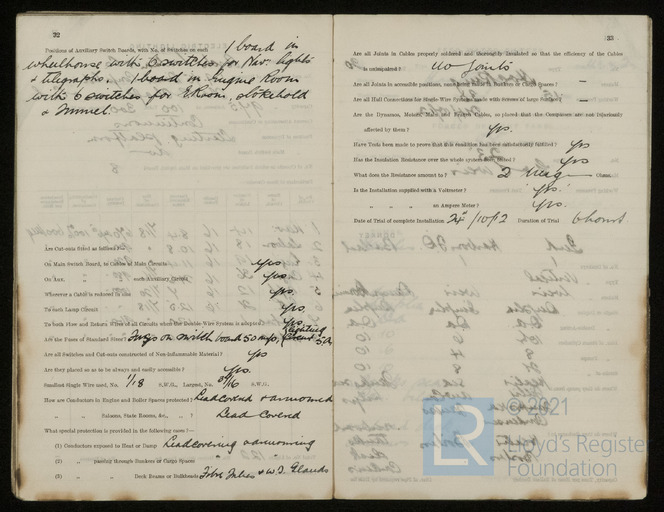 32
Positions of Auxiliary Switch Boards, with No. of Switches on each 1 board in
wheelhouse with 6 switches for Nav. lights
& telegraphs. 1 board in Engine Room
with 6 switches for E Room, stokehold
& Tunnel.
Are Cut-outs fitted as follows?—
On Main Switch Board, to Cables of Main Circuits yes.
On Aux. " " each Auxiliary Circuit yes.
Wherever a Cable is reduced in size yes.
To each Lamp Circuit yes.
To both Flow and Return Wires of all Circuits when the Double-Wire System is adopted? yes.
Are the Fuses of Standard Sizes? on switch board 50 amps, lighting circuit 5A
Are all Switches and Cut-outs constructed of Non-Inflammable Material? yes
Are they placed so as to be always and easily accessible? yes.
Smallest Single Wire used, No. 1/18 S.W.G., Largest, No. /16 S.W.G.
How are Conductors in Engine and Boiler Spaces protected? Lead covered & armoured
" " Saloons, State Rooms, &c., " ? Lead Covered
What special protection is provided in the following cases?—
(1) Conductors exposed to Heat or Damp Lead covering & armouring
(2) " passing through Bunkers or Cargo Spaces "
(3) " " Deck Beams or Bulkheads Fibre Tubes & W.T. Glands
33
Are all Joints in Cables properly soldered and thoroughly insulated so that the efficiency of the Cables
is unimpaired? No Joints
Are all Joints in accessible positions, none being made in Bunkers or Cargo Spaces? —
Are all Hull Connections for Single-Wire Systems made with Screws of large Surface? —
Are the Dynamos, Motors, Main and Branch Cables, so placed that the Compasses are not injuriously
affected by them? Yes.
Have Tests been made to prove that this condition has been satisfactorily fulfilled? Yes
Has the Insulation Resistance over the whole system been tested? Yes
What does the Resistance amount to? 2 Meg Ohms.
Is the Installation supplied with a Voltmeter? Yes.
" " " an Ampere Meter? Yes.
Date of Trial of complete Installation 24/10/12 Duration of Trial 6 hours
© 2021
LR
Lloyd's Register
Foundation